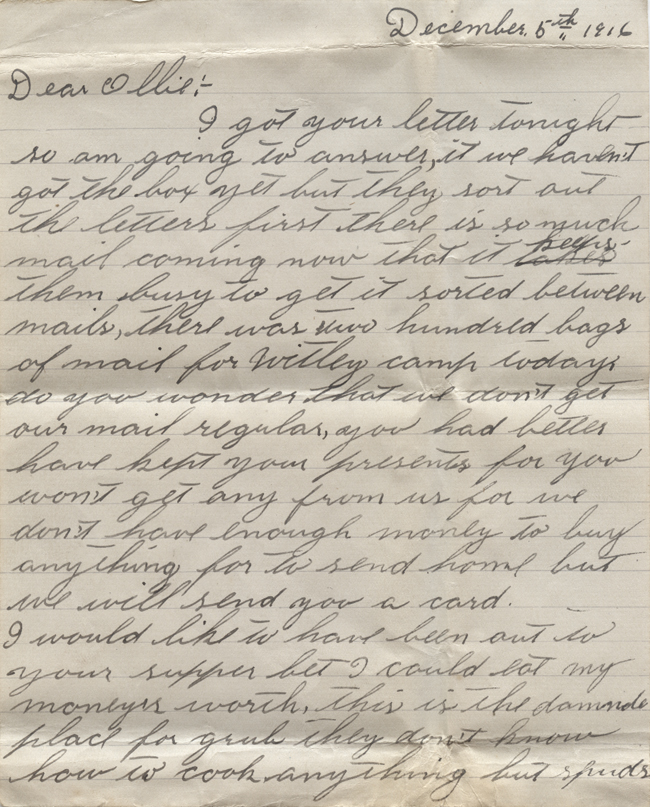 December, 5th 1916
Dear Ollie:-
I got your letter tonight
so am going to answer, it we haven't
got the box yet but they sort out
the letters first there is so much
mail coming now that it takes keeps
them busy to get it sorted between
mails, there was two hundred bags
of mail for Witley camp today,
do you wonder that we don't get
our mail regular, you had better
have kept your presents for you
won't get any from us for we
don't have enough money to buy
anything for to send home but
we will send you a card.
I would like to have been out to
your supper bet I could eat my
moneys worth, this is the damnde
place for grub they don't know
how to cook anything but spuds